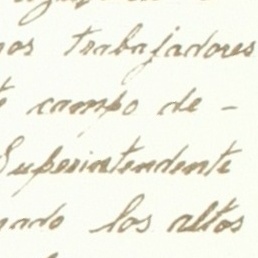 nos trabajadores
campo de -
Superintendente
nado los altos